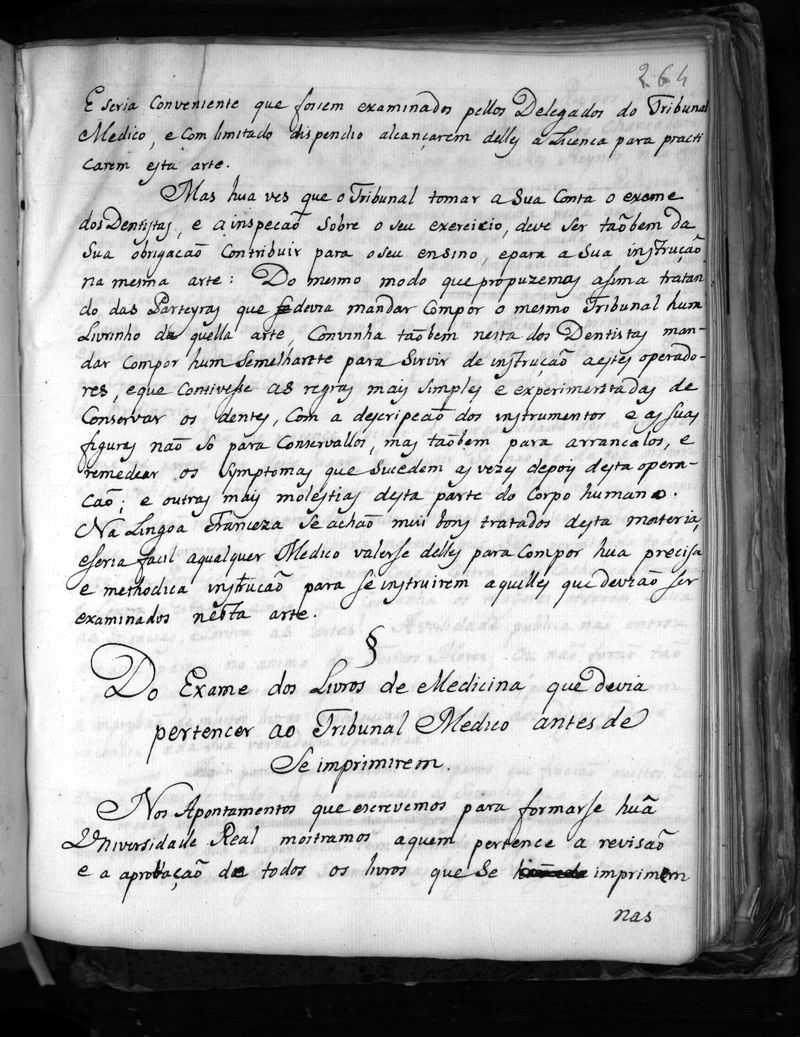 264
E seria Conveniente que fossem examinados pellos Delegados do Tribunal
Medico, e Com limitado dispendio alcançarem delles a Licenca para practi
carem esta arte.
Mas hua ves que o Tribunal tomar a Sua Conta o exame
dos Dentistas, e a inspecaõ Sobre o seu exercicio, deve ser taõbem da
Sua obrigacaõ Contribuir para o seu ensino, epara a Sua instruçaõ
na mesma arte: Do mesmo modo que propuzemos asima tratan
do das Parteyras que devia mandar Compor o mesmo Tribunal hum
Livrinho da quella arte, Convinha taõbem nesta dos Dentistas man-
dar Compor hum Semelhante para Sirvir de instruçaõ aestes operado-
res, eque Contivesse as regras mais simples e experimentadas de
Conservar os dentes, Com a descripcaõ dos instrumentos e as suas
figuras naõ so para Conservallos, mas taõbem para arrancalos, e
remedear os Symptomas que Sucedem as vezes depois desta opera-
caõ; e outras mais molestias desta parte do Corpo humano.
Na Lingoa Franceza Se achaõ mui bons tratados desta materia,
eseria facil aqualquer Medico valerse delles para Compor hua precisa
e methodica instrucaõ para se instruirem aquelles que deviaõ ser
examinados nesta arte.
§
Do Exame dos Livros de Medicina que devia
pertencer ao Tribunal Medico antes de
Se imprimirem.
Nos Apontamentos que escrevemos para formarse huã
Universidade Real mostramos aquem pertence a revisaõ
e a aprovaçaõ de todos os livros que Se imprimem
nas